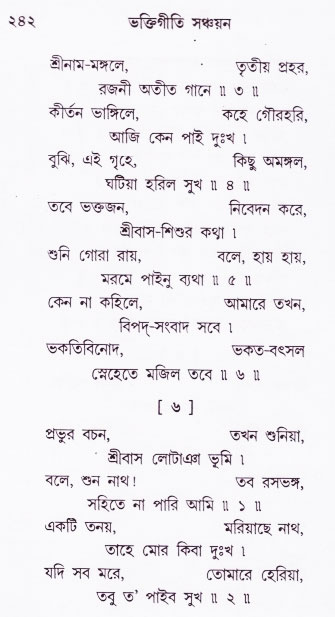 ২৪২ ভক্তিগীতি সঞ্চয়ন
শ্রীনাম-মঙ্গলে, তৃতীয় প্রহর,
রজনী অতীত গানে ॥ ৩ ॥
কীর্তন ভাঙ্গিলে, কহে গৌরহরি,
আজি কেন পাই দুঃখ ।
বুঝি, এই গৃহে, কিছু অমঙ্গল,
ঘটিয়া হরিল সুখ ॥ ৪ ॥
তবে ভক্তজন, নিবেদন করে,
শ্রীবাস-শিশুর কথা ।
শুনি গোরা রায়, বলে, হায় হায়,
মরমে পাইনু ব্যথা ॥ ৫ ॥
কেন না কহিলে, আমারে তখন,
বিপদ্-সংবাদ সবে ।
ভকতিবিনোদ, ভকত-বৎসল
স্নেহেতে মজিল তবে ॥ ৬ ॥
[ ৬ ]
প্রভুর বচন, তখন শুনিয়া,
শ্রীবাস লোটাঞা ভূমি ।
বলে, শুন নাথ! তব রসভঙ্গ,
সহিতে না পারি আমি ॥ ১ ॥
একটি তনয়, মরিয়াছে নাথ,
তাহে মোর কিবা দুঃখ ।
যদি সব মরে, তোমারে হেরিয়া,
তবু ত' পাইব সুখ ॥ ২ ॥